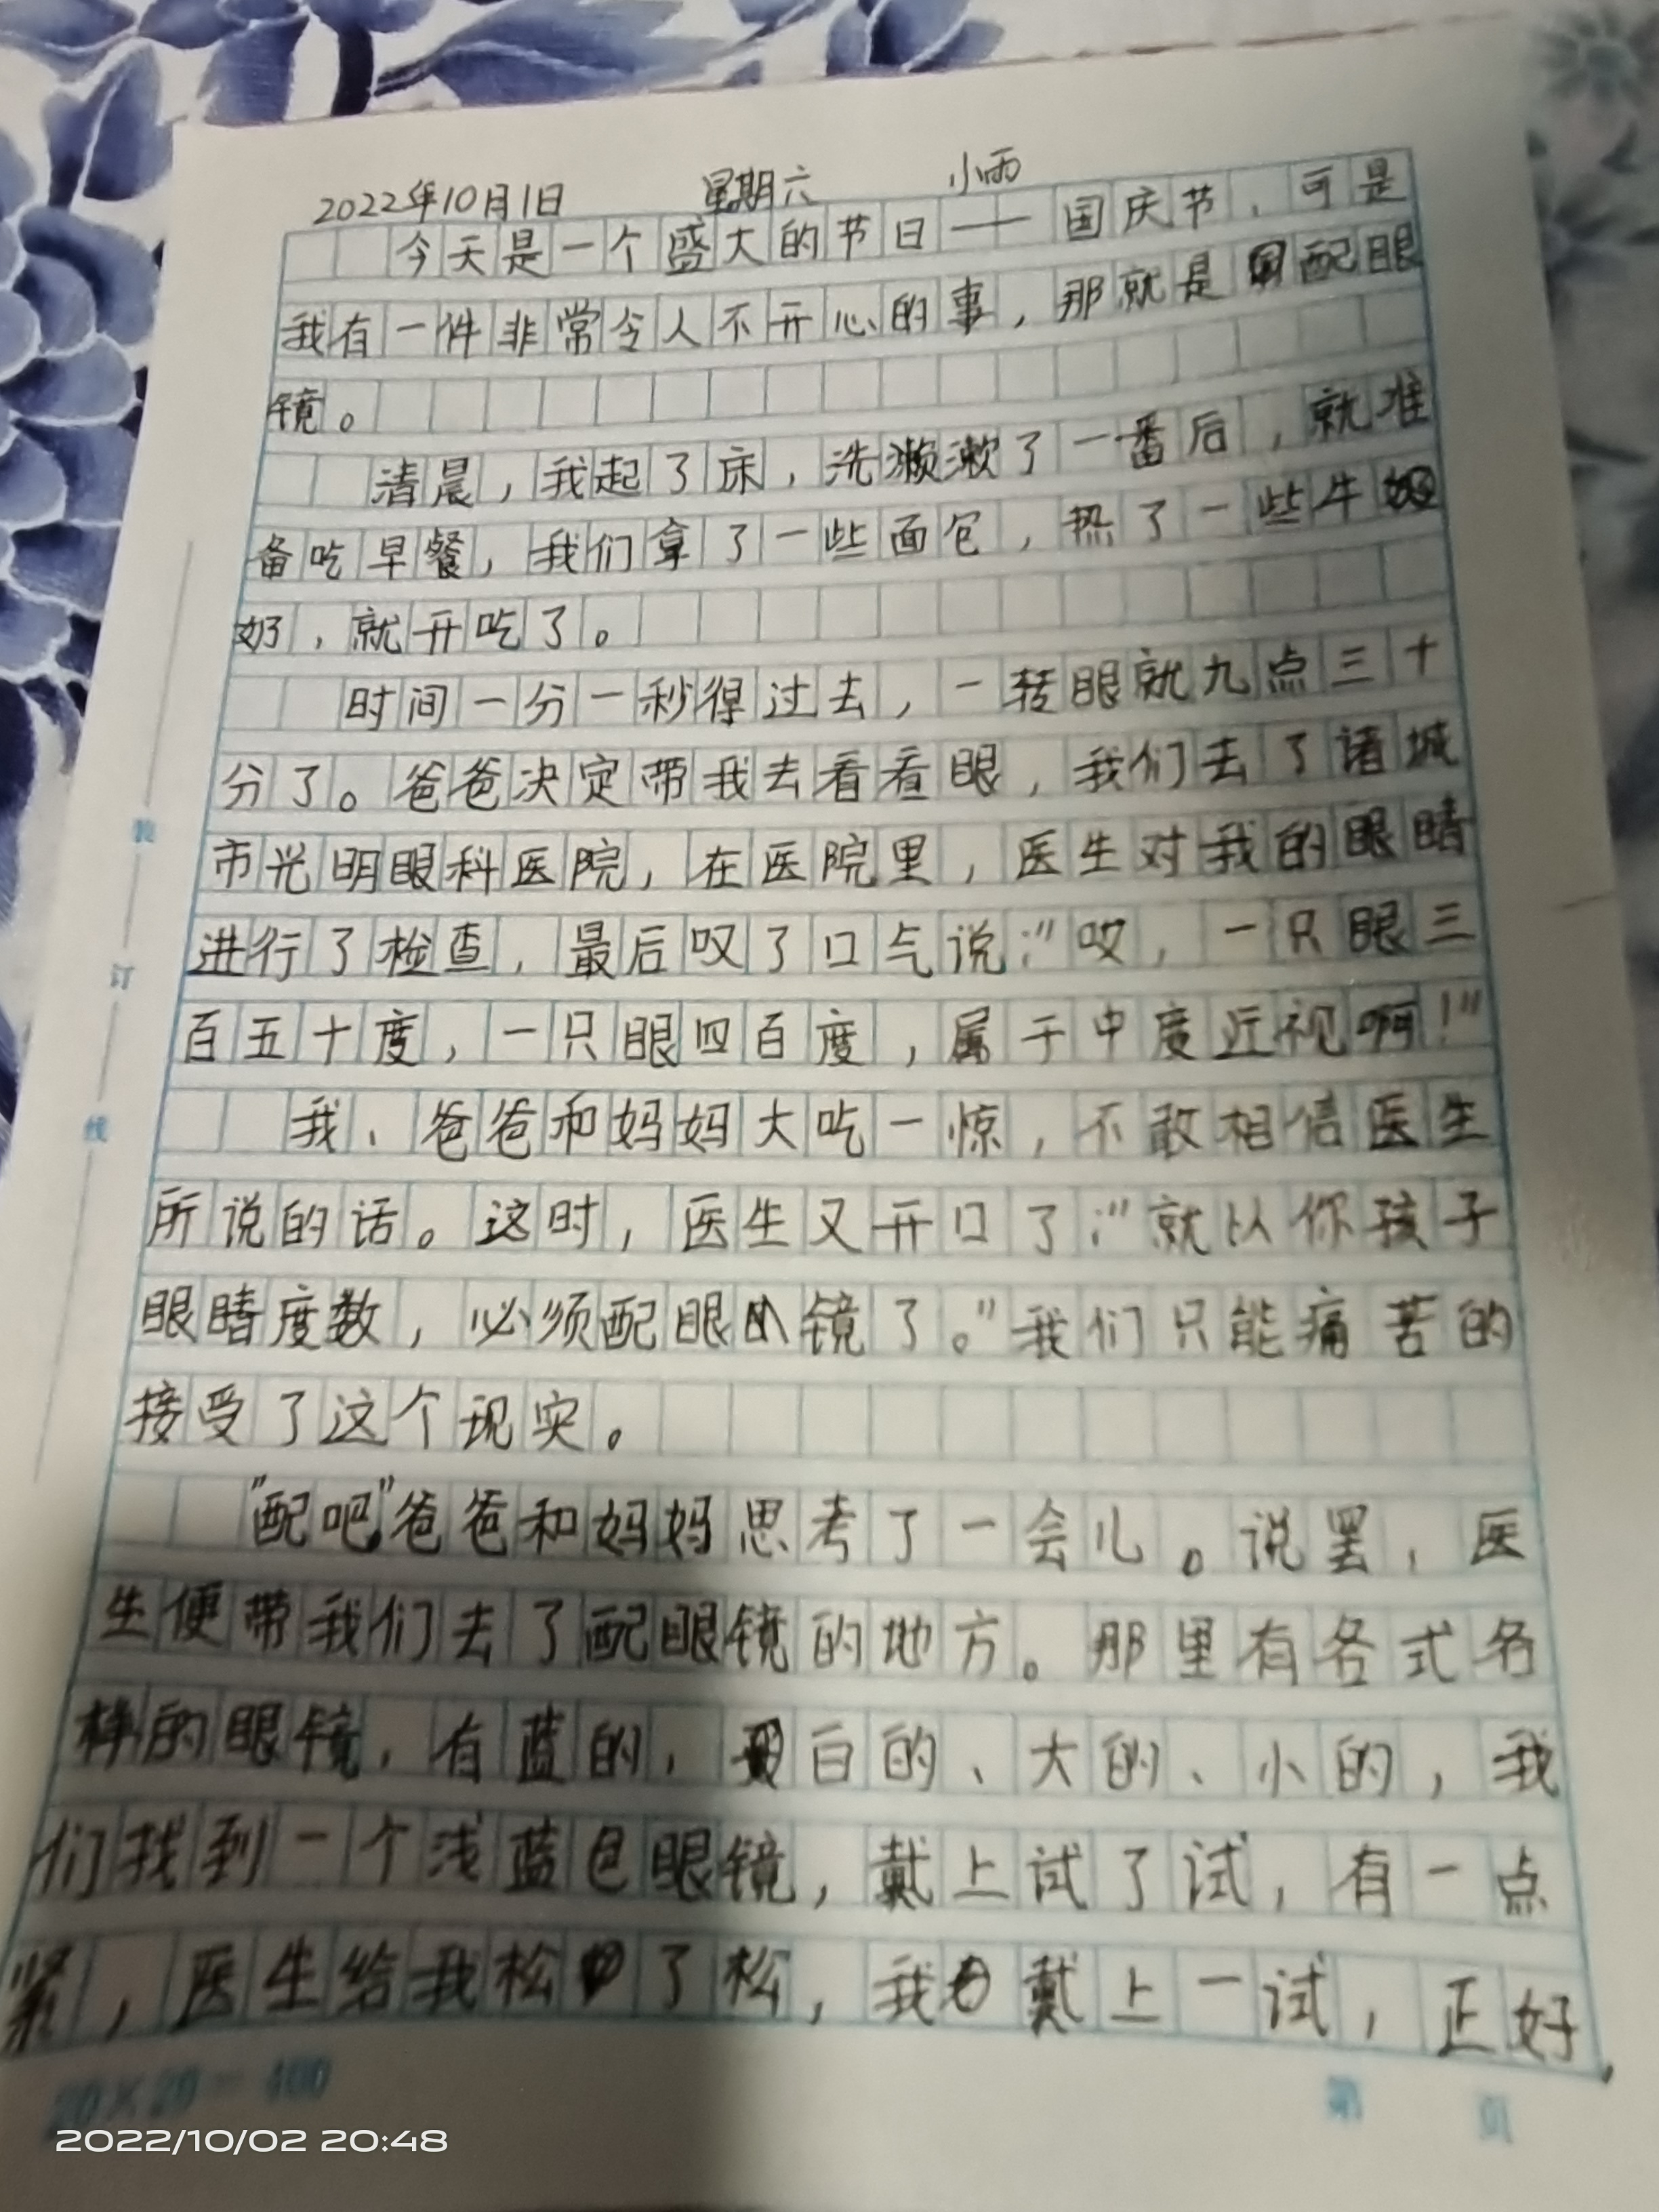 2022年10月1日 星期六 小雨
今天是一个盛大的节日——国庆节，可是
我有一件非常令人不开心的事，那就是配眼
镜。
清晨，我起了床，洗濑漱了一番后，就准
备吃早餐，我们拿了一些面包，热了一些牛
奶，就开吃了。
时间一分一秒得过去，一转眼就九点三十
分了。爸爸决定带我去看看眼，我们去了诸城
市光明眼科医院，在医院里，医生对我的眼睛
进行了检查，最后叹了口气说：“哎，一只眼三
百五十度，一只眼四百度，属于中度近视啊！”
我、爸爸和妈妈大吃一惊，不敢相信医生
所说的话。这时，医生又开口了：“就以你孩子
眼睛度数，必须配眼镜了。”我们只能痛苦的
接受了这个现实。
“配吧”爸爸和妈妈思考了一会儿。说罢，医
生便带我们去了配眼镜的地方。那里有各式各
样的眼镜，有蓝的、白的、大的、小的，我
们找到一个浅蓝色眼镜，戴上试了试，有一点
紧，医生给我松了松，我戴上一试，正好，
装
订
线
20×20=400
第 页
2022/10/02 20:48